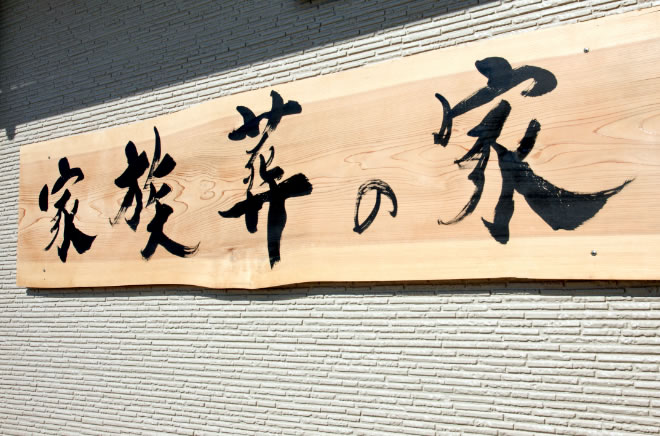 家族葬の家